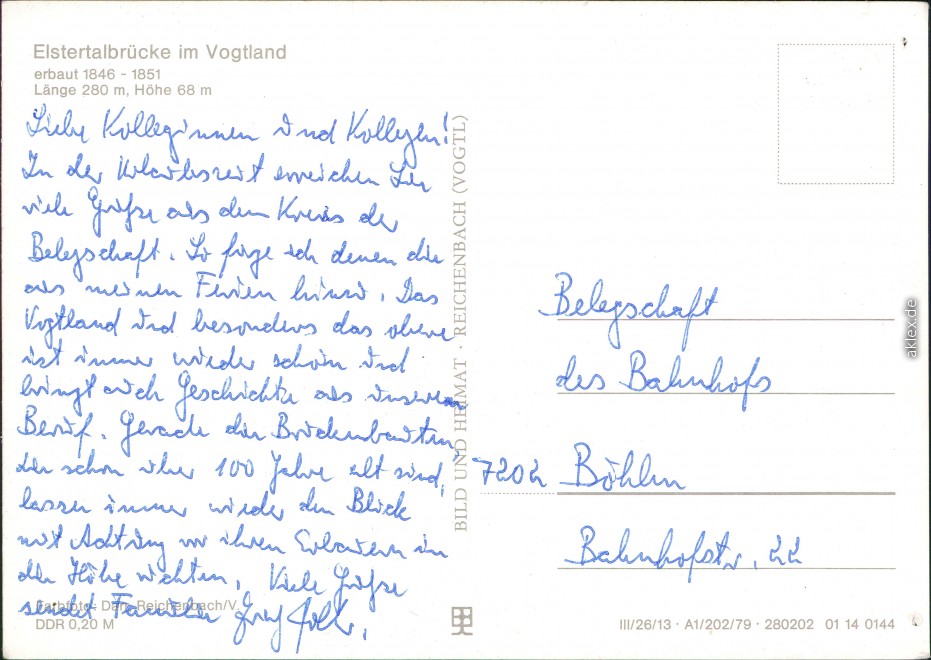 Elstertalbrücke im Vogtland
erbaut 1846 - 1851
Länge 280 m, Höhe 68 m
Liebe Kolleginnen und Kollegen!
In der Urlaubszeit erreichen Sie
viele Grüße aus dem Kreis der
Belegschaft. So füge ich denen die
aus meinen Ferien hinzu. Das
Vogtland und besonders das obere
ist immer wieder schön und
bringt auch Geschichte aus unserem
Beruf. Gerade die Brückenbauten
die schon über 100 Jahre alt sind,
lassen immer wieder den Blick
mit Achtung vor ihren Erbauern in
die Höhe richten. Viele Grüße
sendet Familie
Farbfoto: Darr, Reichenbach/V.
DDR 0,20 M
BILD UND HEIMAT · REICHENBACH (VOGTL)
Belegschaft
des Bahnhofs
7202 Böhlen
Bahnhofstr. 22
III/26/13 · A1/202/79 · 280202 01 14 0144
aklex.de